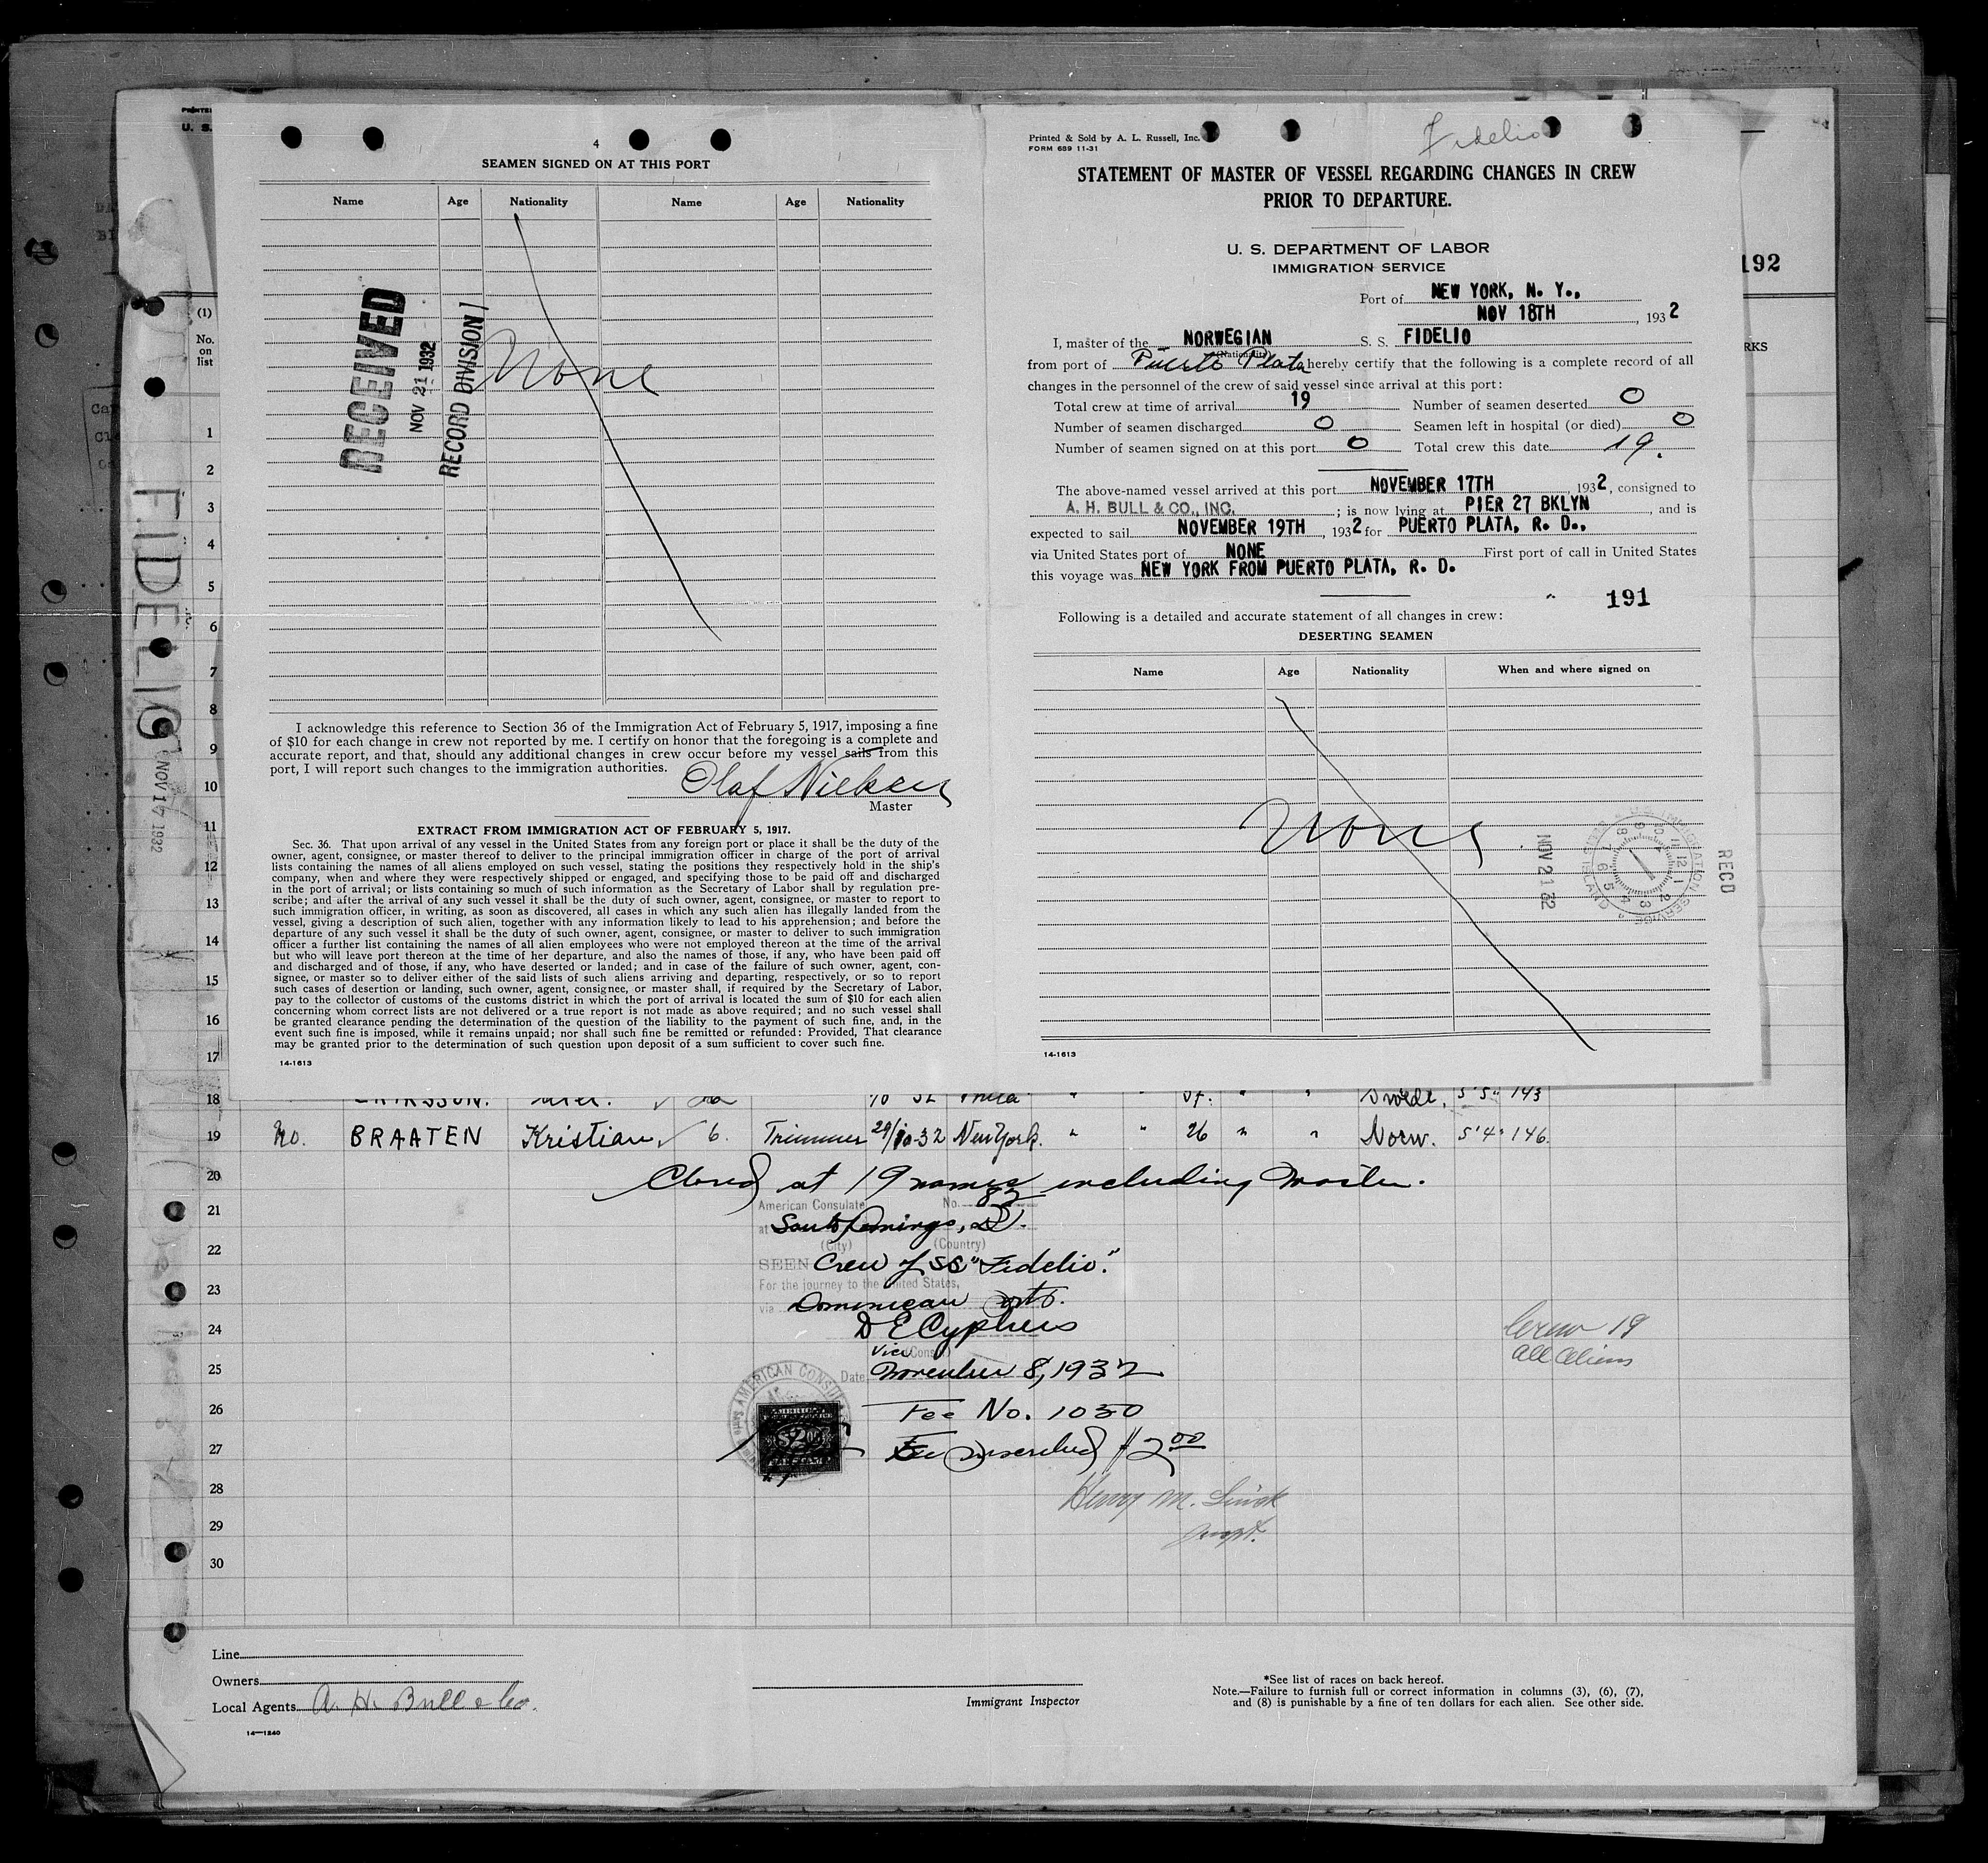 4
SEAMEN SIGNED ON AT THIS PORT
Name Age Nationality Name Age Nationality
RECEIVED
NOV 21 1932
RECORD DIVISION
None
I acknowledge this reference to Section 36 of the Immigration Act of February 5, 1917, imposing a fine
of $10 for each change in crew not reported by me. I certify on honor that the foregoing is a complete and
accurate report, and that, should any additional changes in crew occur before my vessel sails from this
port, I will report such changes to the immigration authorities.
Olaf Nielsen
Master
EXTRACT FROM IMMIGRATION ACT OF FEBRUARY 5, 1917.
Sec. 36. That upon arrival of any vessel in the United States from any foreign port or place it shall be the duty of the
owner, agent, consignee, or master thereof to deliver to the principal immigration officer in charge of the port of arrival
lists containing the names of all aliens employed on such vessel, stating the positions they respectively hold in the ship's
company, when and where they were respectively shipped or engaged, and specifying those to be paid off and discharged
in the port of arrival; or lists containing so much of such information as the Secretary of Labor shall by regulation pre-
scribe; and after the arrival of any such vessel it shall be the duty of such owner, agent, consignee, or master to report to
such immigration officer, in writing, as soon as discovered, all cases in which any such alien has illegally landed from the
vessel, giving a description of such alien, together with any information likely to lead to his apprehension; and before the
departure of any such vessel it shall be the duty of such owner, agent, consignee, or master to deliver to such immigration
officer a further list containing the names of all alien employees who were not employed thereon at the time of the arrival
but who will leave port thereon at the time of her departure, and also the names of those, if any, who have been paid off
and discharged and of those, if any, who have deserted or landed; and in case of the failure of such owner, agent, con-
signee, or master so to deliver either of the said lists of such aliens arriving and departing, respectively, or so to report
such cases of desertion or landing, such owner, agent, consignee, or master shall, if required by the Secretary of Labor,
pay to the collector of customs of the customs district in which the port of arrival is located the sum of $10 for each alien
concerning whom correct lists are not delivered or a true report is not made as above required; and no such vessel shall
be granted clearance pending the determination of the question of the liability to the payment of such fine, and, in the
event such fine is imposed, while it remains unpaid; nor shall such fine be remitted or refunded: Provided, That clearance
may be granted prior to the determination of such question upon deposit of a sum sufficient to cover such fine.
14-1613
Fidelio
Printed & Sold by A. L. Russell, Inc.
FORM 689 11-31
STATEMENT OF MASTER OF VESSEL REGARDING CHANGES IN CREW
PRIOR TO DEPARTURE.
U. S. DEPARTMENT OF LABOR
IMMIGRATION SERVICE
Port of NEW YORK, N. Y.,
NOV 18TH, 1932
I, master of the NORWEGIAN S. S. FIDELIO
(Nationality)
from port of Puerto Plata hereby certify that the following is a complete record of all
changes in the personnel of the crew of said vessel since arrival at this port:
Total crew at time of arrival 19 Number of seamen deserted 0
Number of seamen discharged 0 Seamen left in hospital (or died) 0
Number of seamen signed on at this port 0 Total crew this date 19.
The above-named vessel arrived at this port NOVEMBER 17TH, 1932, consigned to
A. H. BULL & CO., INC. ; is now lying at PIER 27 BKLYN, and is
expected to sail NOVEMBER 19TH, 1932 for PUERTO PLATA, R. D.,
via United States port of NONE First port of call in United States
this voyage was NEW YORK FROM PUERTO PLATA, R. D.
191
Following is a detailed and accurate statement of all changes in crew:
DESERTING SEAMEN
Name Age Nationality When and where signed on
None
NOV 21 32
RECD
14-1613
192
RKS
U. S.
(1)
No.
on
list
FIDELIO
NOV 17 1932
1
2
3
4
5
6
7
8
9
10
11
12
13
14
15
16
17
18 ERIKSSON.
19 No. BRAATEN Kristian 6. Trimmer 29/10-32 New York. " " 26 " " Norw. 5'4" 146.
20 Closed at 19 names including Master.
American Consulate No. 82
21 at Santo Domingo, D.R.
(City) (Country)
22 SEEN Crew of SS "Fidelio."
For the journey to the United States,
23 via Dominican ports.
24 D E Cyphers
Vice (Consul)
Crew 19
all aliens
25 Date November 8, 1932
26 Fee No. 1050
27 Fee prescribed $2.00
28 Henry M.
29
30
Line
Owners
Local Agents A. H. Bull & Co.
Immigrant Inspector
*See list of races on back hereof.
Note.—Failure to furnish full or correct information in columns (3), (6), (7),
and (8) is punishable by a fine of ten dollars for each alien. See other side.
14—1240